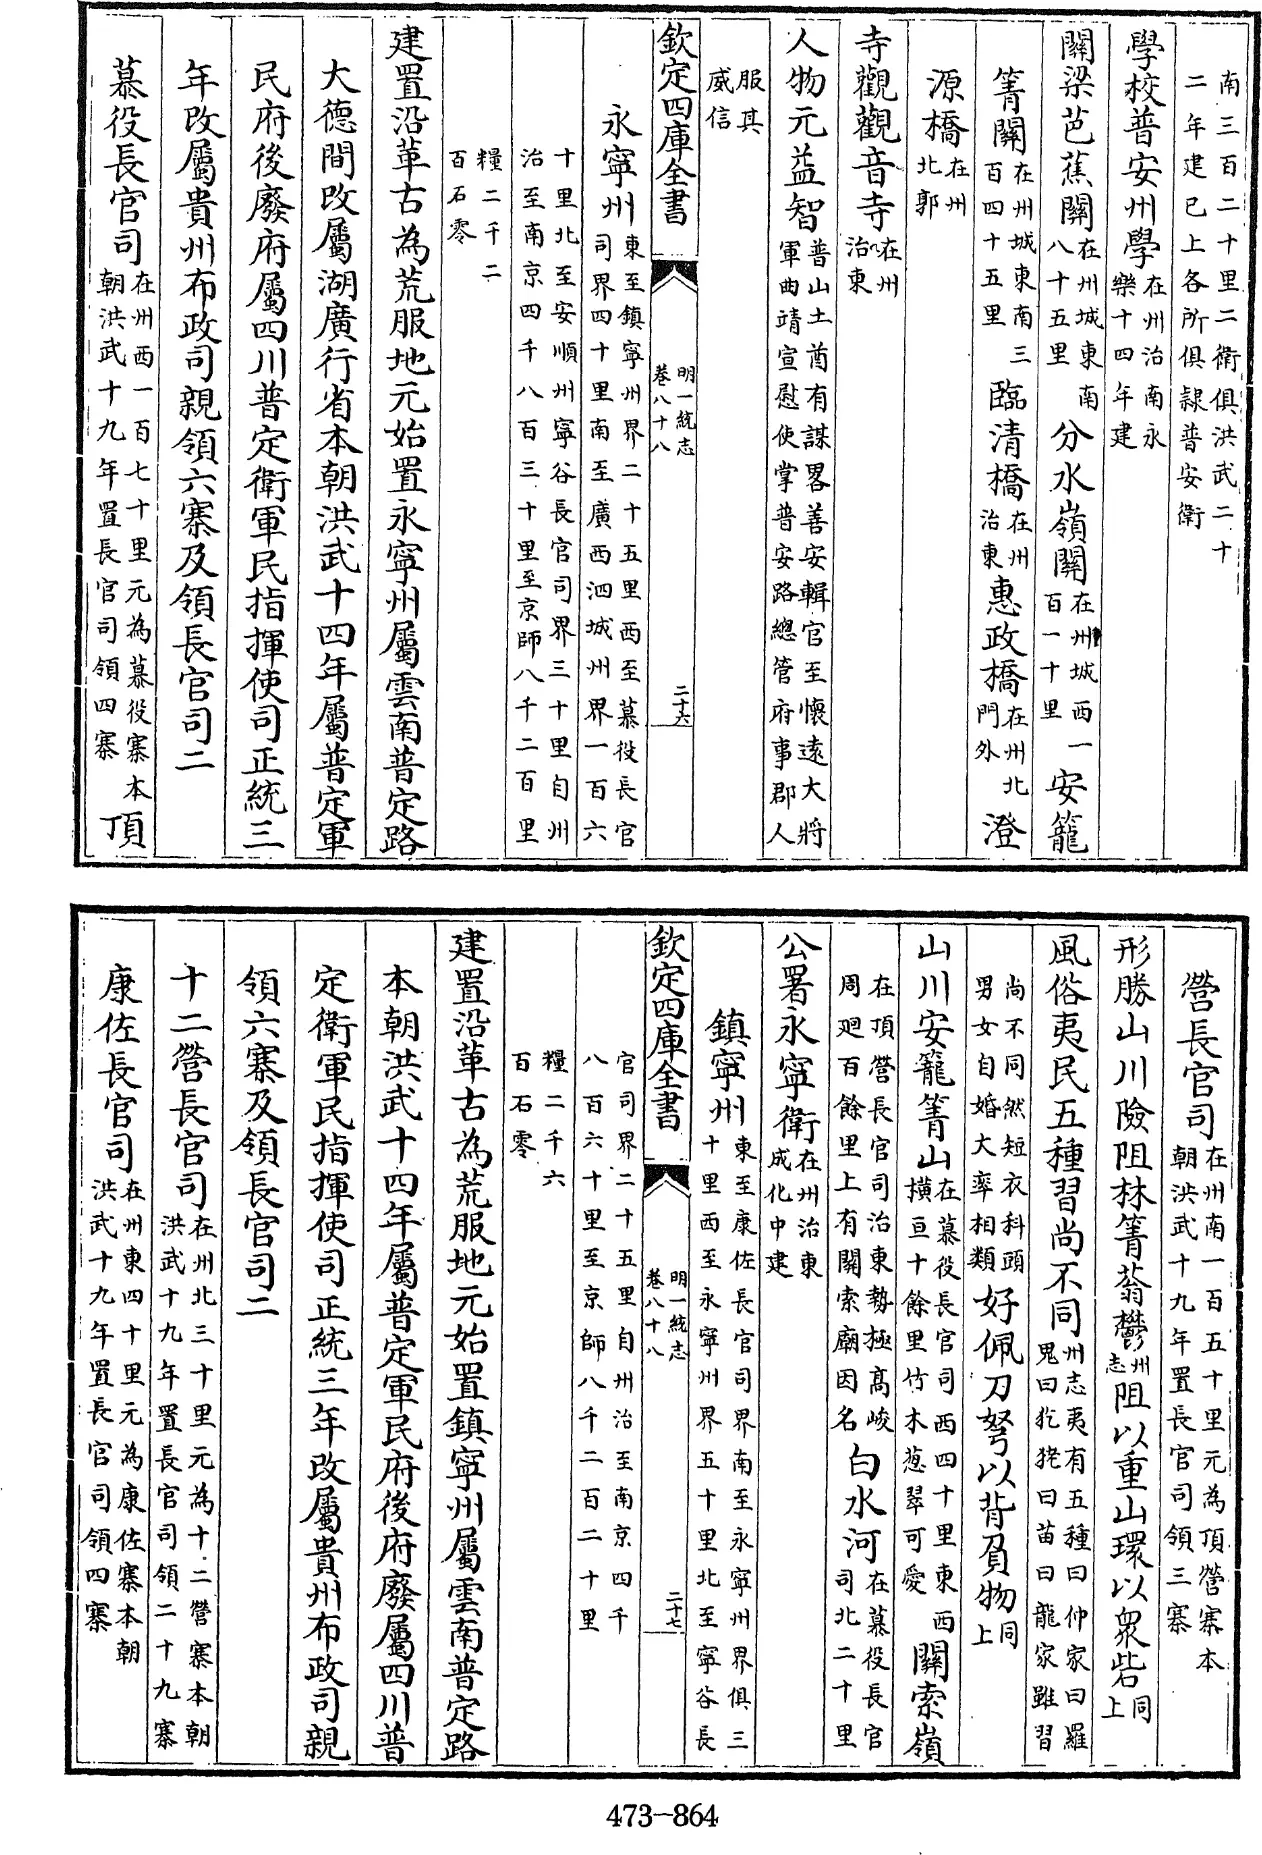 南三百二十里二衛俱洪武二十二年建已上各所俱隸普安衛
學校普安州學在州治南永樂十四年建
關梁芭蕉關在州城東南八十五里分水嶺關在州城西一百一十里安籠
箐關在州城東南三百四十五里臨清橋在州治東惠政橋在州北門外澄
源橋在州北郭
寺觀觀音寺在州治東
人物元益智普山土酋有謀畧善安輯官至懷遠大將軍曲靖宣慰使掌普安路總管府事郡人
服其威信
欽定四庫全書
明一統志
卷八十八
二十六
永寧州東至鎮寧州界二十五里西至慕役長官司界四十里南至廣西泗城州界一百六
十里北至安順州寧谷長官司界三十里自州治至南京四千八百三十里至京師八千二百里
糧二千二百石零
建置沿革古為荒服地元始置永寧州屬雲南普定路
大德間改屬湖廣行省本朝洪武十四年屬普定軍
民府後廢府屬四川普定衛軍民指揮使司正統三
年改屬貴州布政司親領六寨及領長官司二
慕役長官司在州西一百七十里元為慕役寨本朝洪武十九年置長官司領四寨頂
營長官司在州南一百五十里元為頂營寨本朝洪武十九年置長官司領三寨
形勝山川險阻林箐蓊鬱州志阻以重山環以衆砦同上
風俗夷民五種習尚不同州志夷有五種曰仲家曰羅鬼曰犵狫曰苗曰龍家雖習
尚不同然短衣科頭男女自婚大率相類好佩刀弩以背負物同上
山川安籠箐山在慕役長官司西四十里東西橫亘十餘里竹木葱翠可愛關索嶺
在頂營長官司治東勢極高峻周廻百餘里上有關索廟因名白水河在慕役長官司北二十里
公署永寧衛在州治東成化中建
鎮寧州東至康佐長官司界南至永寧州界俱三十里西至永寧州界五十里北至寧谷長
欽定四庫全書
明一統志
卷八十八
二十七
官司界二十五里自州治至南京四千八百六十里至京師八千二百二十里
糧二千六百石零
建置沿革古為荒服地元始置鎮寧州屬雲南普定路
本朝洪武十四年屬普定軍民府後府廢屬四川普
定衛軍民指揮使司正統三年改屬貴州布政司親
領六寨及領長官司二
十二營長官司在州北三十里元為十二營寨本朝洪武十九年置長官司領二十九寨
康佐長官司在州東四十里元為康佐寨本朝洪武十九年置長官司領四寨
473-864